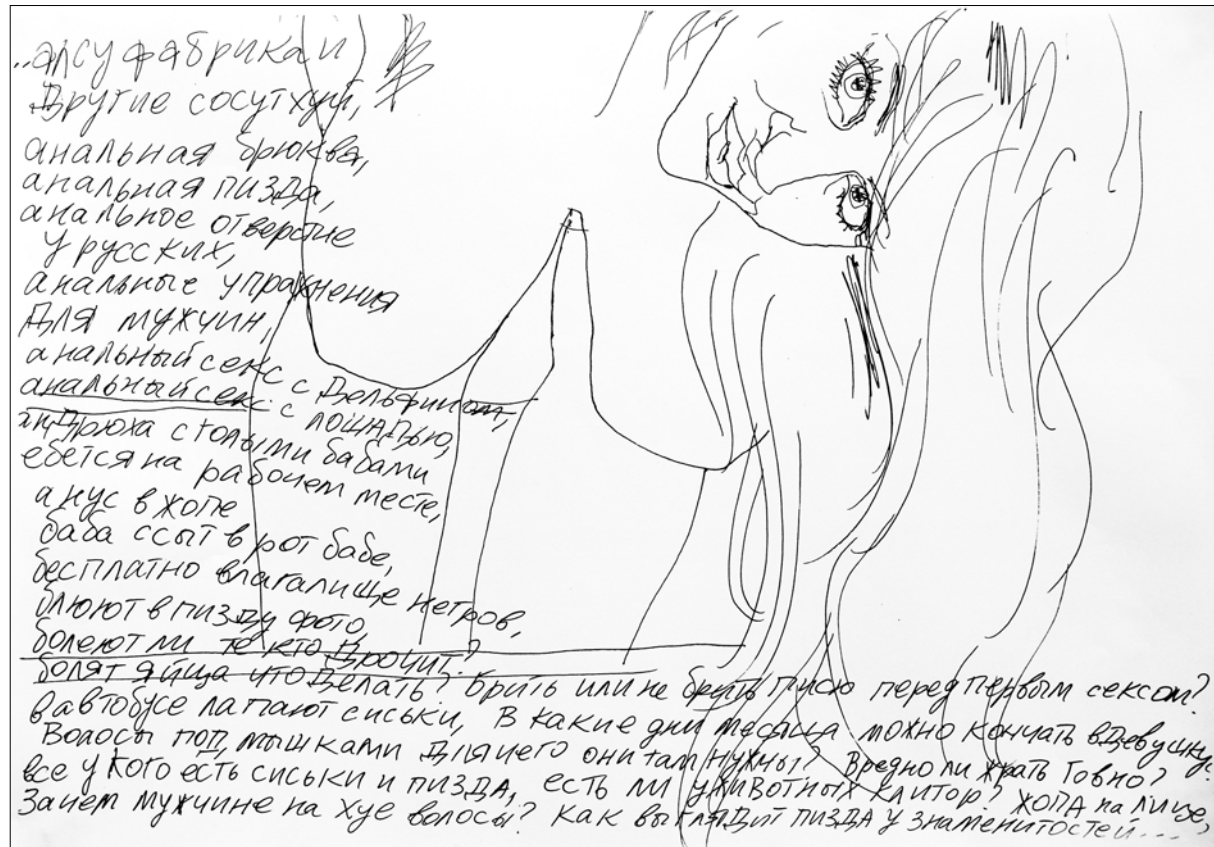 ..алсу фабрика и
другие сосут хуй,
анальная брюква,
анальная пизда,
анальное отверстие
у русских,
анальные упражнения
для мужчин,
анальный секс с дельфином,
анальный секс с лошадью,
андрюха с голыми бабами
ебется на рабочем месте,
анус в жопе
баба ссыт в рот бабе,
бесплатно влагалище негров,
блюют в пизду фото
болеют ли те кто дрочит?
болят яйца что делать? Брить или не брить писю перед первым сексом?
в автобусе лапают сиськи, В какие дни месяца можно кончать в девушку?
Волосы под мышками для чего они там нужны? Вредно ли жрать говно?
все у кого есть сиськи и пизда, есть ли у животных клитор? жопа на лице,
Зачем мужчине на хуе волосы? Как выглядит пизда у знаменитостей....